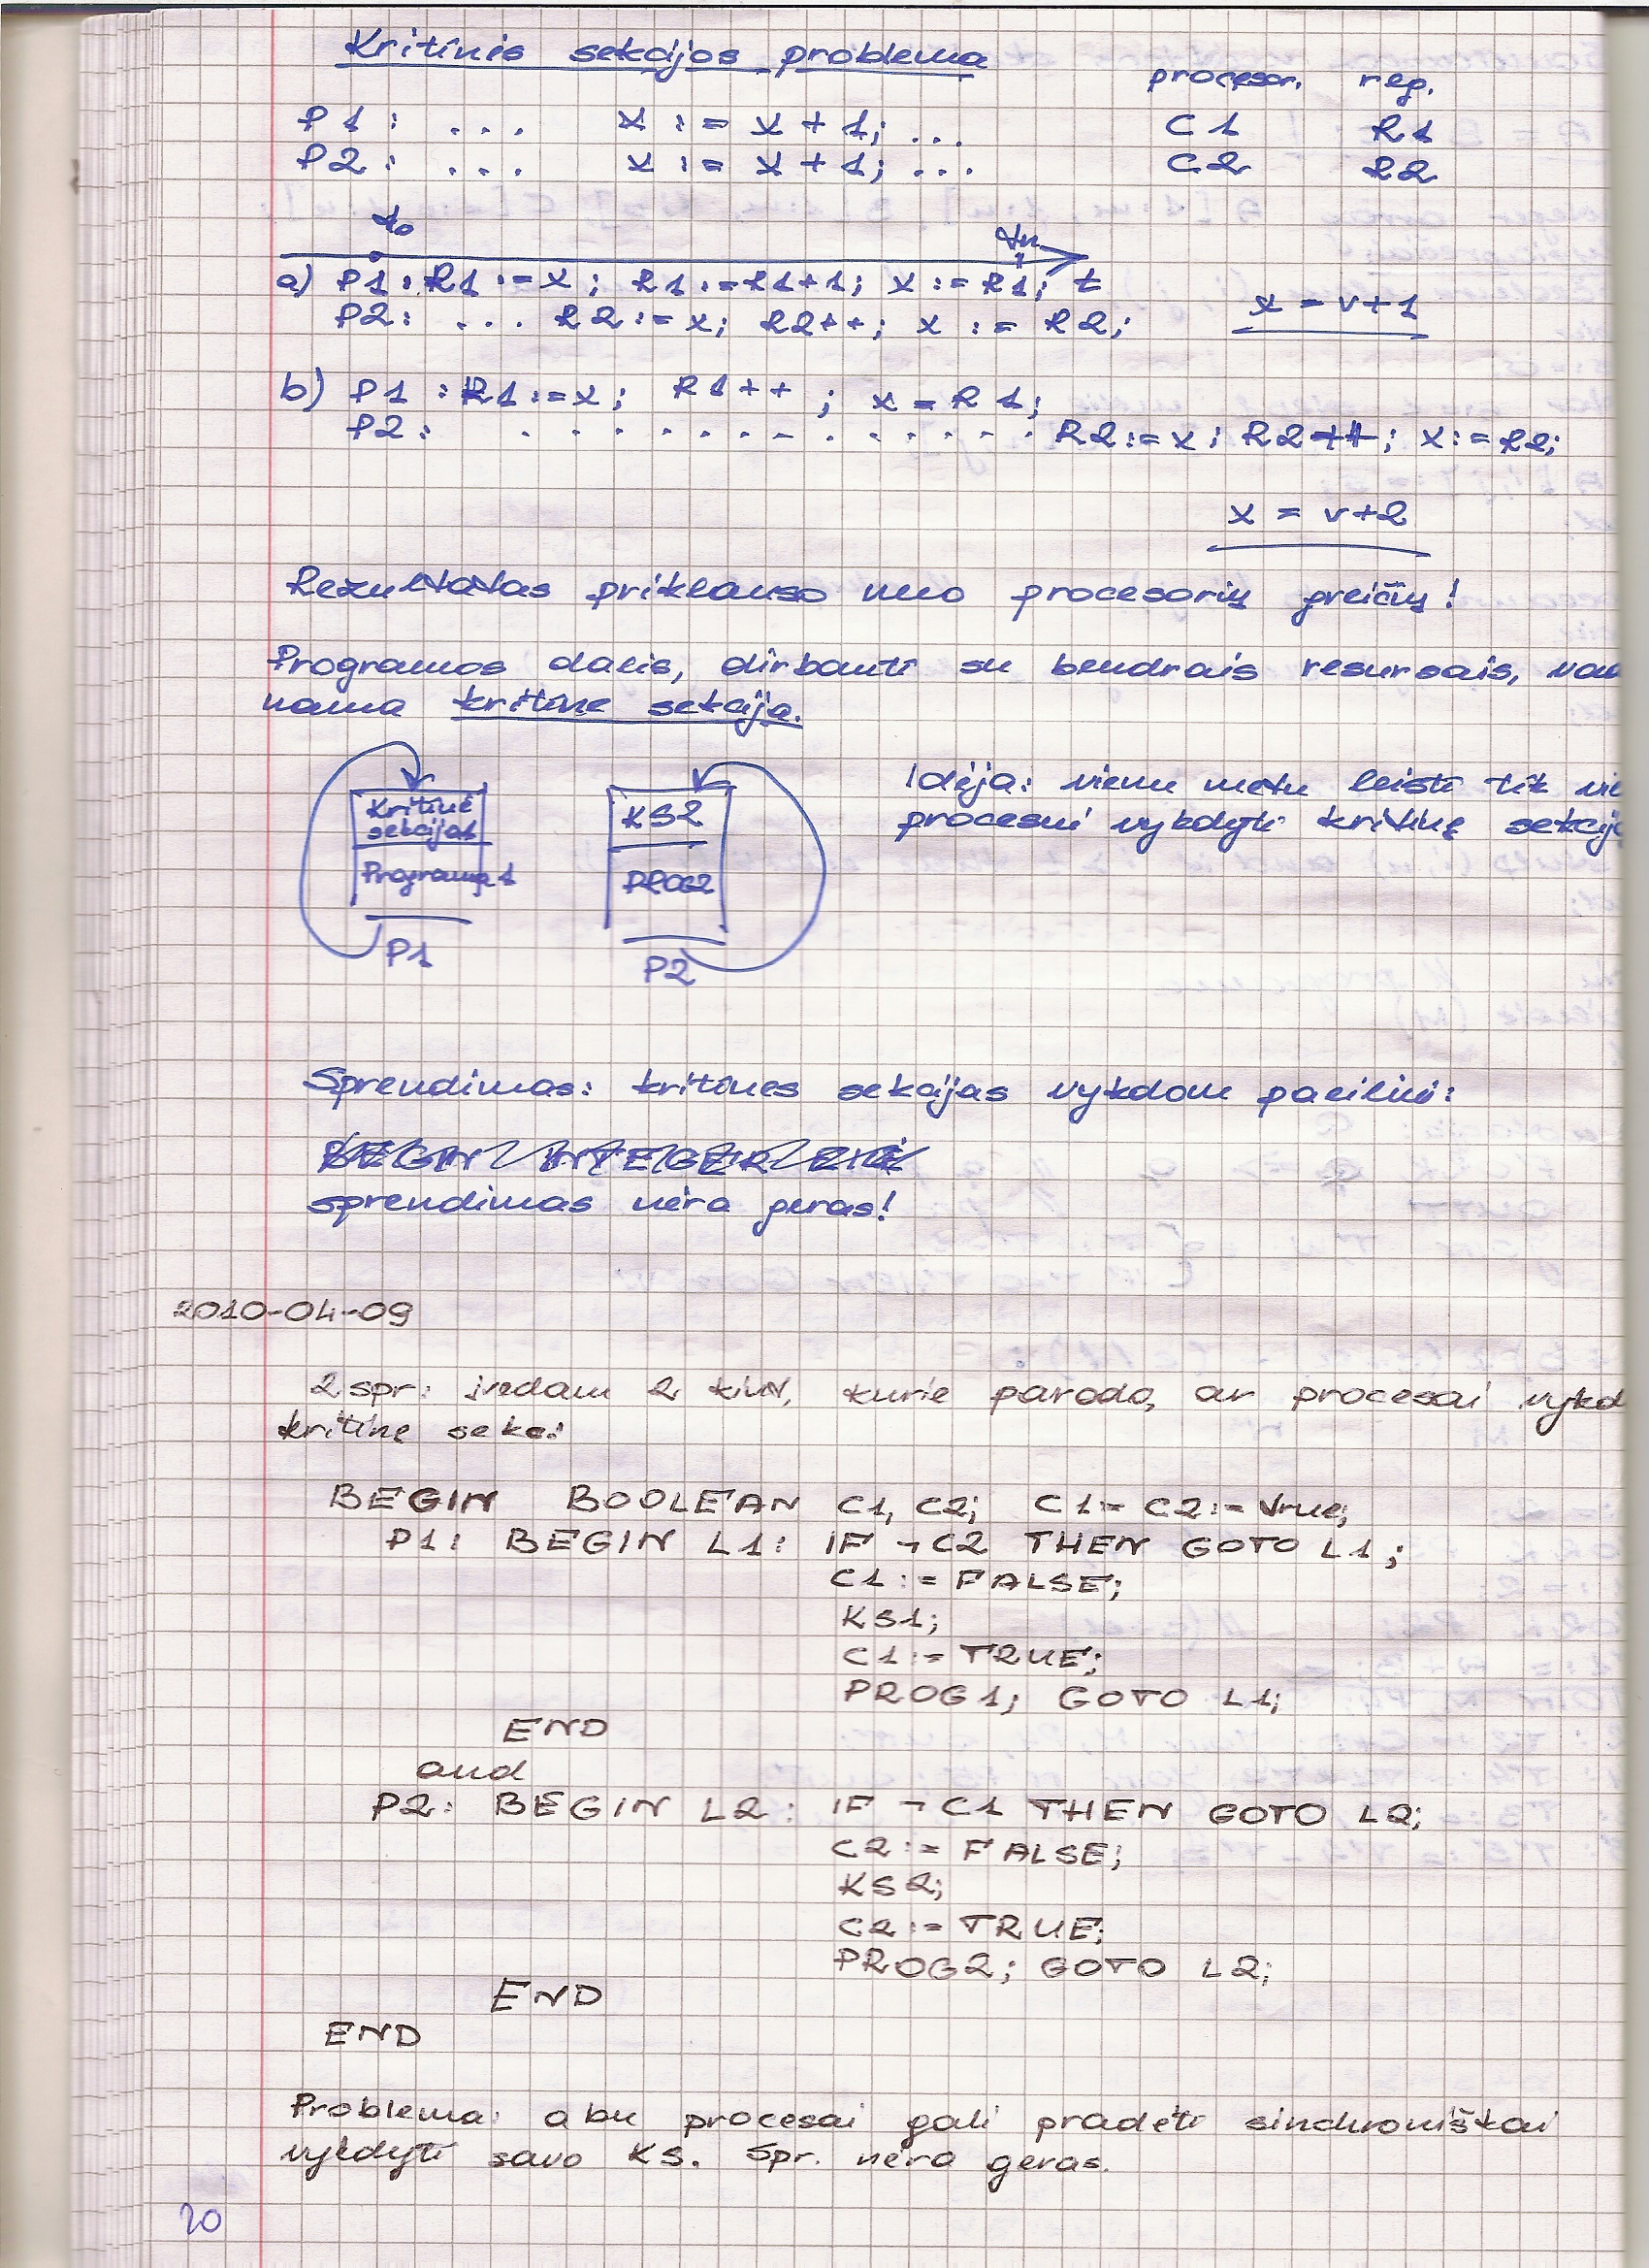 Kritinės sekcijos problema
procesor. reg.
P1: ... x := x + 1; ... C1 R1
P2: ... x := x + 1; ... C2 R2
t0 tn
a) P1: R1 := x; R1 := R1+1; x := R1; t
P2: ... R2 := x; R2++; x := R2;
x = v+1
b) P1: R1 := x; R1++; x = R1;
P2: . . . . . . . . . . . . . R2 := x; R2++; x := R2;
x = v+2
Rezultatas priklauso nuo procesorių greičių!
Programos dalis, dirbanti su bendrais resursais, vadi
nama kritine sekcija.
Kritinė
sekcija1
Programa1
P1
KS2
PROG2
P2
Idėja: vienu metu leisti tik vie
procesui vykdyti kritinę sekcij
Sprendimas: kritines sekcijas vykdom paeiliui:
BEGIN INTEGER
sprendimas nėra geras!
2010-04-09
2 spr: įvedam 2 kint, kurie parodo, ar procesai vykd
kritinę sekc:
BEGIN BOOLEAN C1, C2; C1 = C2 := true;
P1: BEGIN L1: IF ¬C2 THEN GOTO L1;
C1 := FALSE;
KS1;
C1 := TRUE;
PROG1; GOTO L1;
END
and
P2: BEGIN L2: IF ¬C1 THEN GOTO L2;
C2 := FALSE;
KS2;
C2 := TRUE;
PROG2; GOTO L2;
END
END
Problema: abu procesai gali pradėti sinchroniškai
vykdyti savo KS. Spr. nėra geras.
20